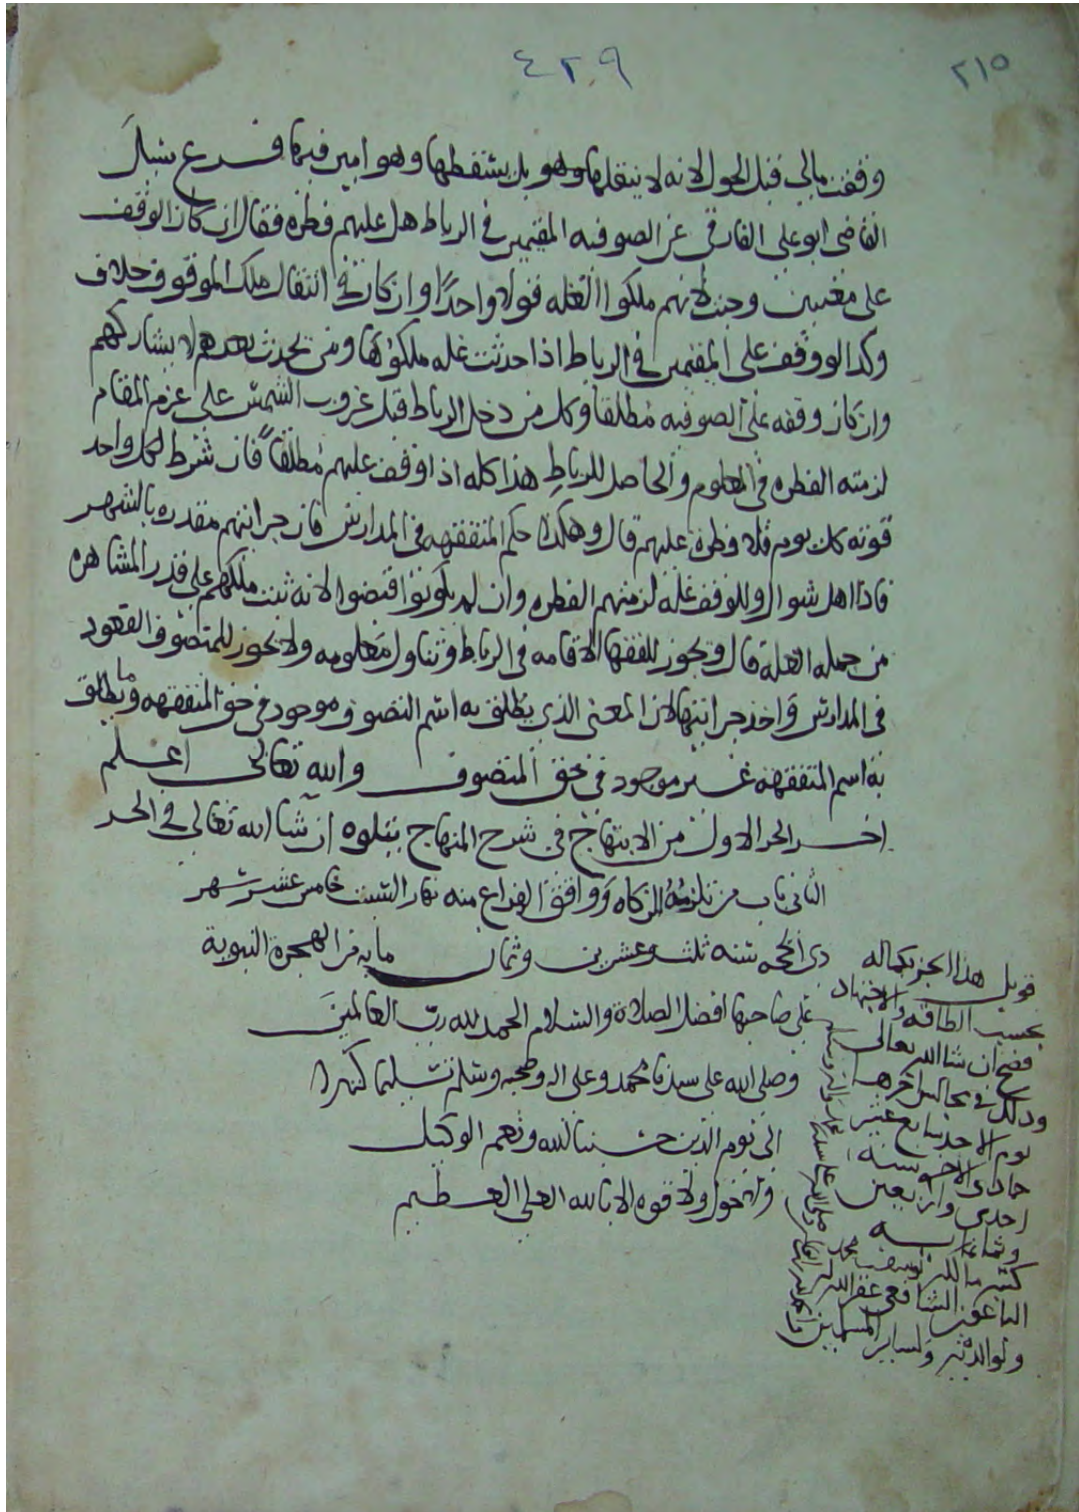 ٢١٥
٤٢٩
وقفت مالي قبل الحول لانه لا ينتقل بل يستقطها وهو امين فيها فرع سيل
القاضي ابو علي الفارقي عن الصوفيه المقيمين في الرباط هل عليهم فطره فقال ان كان الوقف
على معينين وجبت لانهم ملكوا الغله قولا واحدًا وان كان في انتقال ملك الموقوف خلاف
وكذا لو وقف على المقيمين في الرباط اذا حدثت غله ملكوها ومن يحدث بعدهم لا يشاركهم
وان كان وقفه على الصوفيه مطلقا وكل من دخل الرباط قبل غروب الشمس على عزم المقام
لزمته الفطره في المعلوم والحاصل للرباط هذا كله اذا وقف عليهم مطلقًا فان شرط لكل واحد
قوته كل يوم فلا فطره عليهم قال وهكذا حكم المتفقهه في المدارس فان جراتهم مقدره بالشهر
فاذا اهل شوال وللوقف غله لزمتهم الفطره وان لم يكونوا قبضوا لانه ثبت ملكهم على قدر المشاهره
من جمله الغله قال ويجوز للفقها الاقامه في الرباط وتناول معلومه ولا يجوز للمتصوف القعود
في المدارس واخذ جرايتها لان المعنى الذي يطلق به اسم التصوف موجود في حق المتفقهه وما يطلق
به اسم المتفقهه غير موجود في حق المتصوف والله تعالى اعلم
اخر الجز الاول من الابتهاج في شرح المنهاج يتلوه ان شا الله تعالى في الجز
الثاني باب من تلزمه الزكاه ووافق الفراغ منه نهار السبت خامس عشر شهر
ذي الحجه سنه ثلث وعشرين وثمان مايه من الهجرة النبوية
على صاحبها افضل الصلاة والسلام الحمد لله رب العالمين
وصلى الله على سيدنا محمد وعلى اله وصحبه وسلم تسليما كثيرا
الى يوم الدين حسبنا الله ونعم الوكيل
ولا حول ولا قوه الا بالله العلي العظيم
قوبل هذا الجز بكماله
بحسب الطاقه والاجتهاد
فصح ان شا الله تعالى
وذلك في مجالس اخرها
يوم الاحد سابع عشر
جمادى الاخر سنه
احدى واربعين
وثمانمايه
كتبه يوسف محمد
الشافعي غفر الله له
ولوالديه ولساير المسلمين
والحمد لله رب العالمين وصلى الله على سيدنا محمد واله وسلم